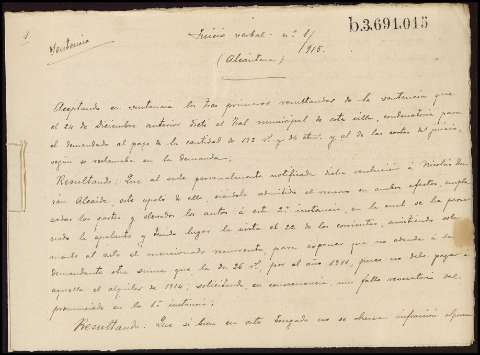 b.3.691.015
Juicio verbal nº 8/
1915.
Sentencia
(Alcántara)
Aceptando en sustancia los tres primeros resultandos de la sentencia que
el 24 de Diciembre anterior dictó el Tribunal municipal de esta villa, condenatoria para
el demandado al pago de la cantidad de 192 y de las costas del juicio,
según se reclamaba en la demanda;
Resultando: Que al serle personalmente notificada dicha resolución á Nicolás
Alcaide, este apeló de ella siéndole admitido el recurso en ambos efectos,
zadas las partes y elevados los autos á esta 2ª instancia, en la cual se ha
nado la apelante y tenido lugar la vista el 22 de los corrientes, asistiendo
mente al acto el mencionado recurrente para exponer que no adeuda á la
demandante otra suma que la de 26 por el año 1911, pues no debe pagar á
aquella el alquiler de 1914; solicitando, en consecuencia, un fallo revocatorio del
pronunciado en la 1ª instancia;
Resultando: Que si bien en este Juzgado no se observa infracción alguna